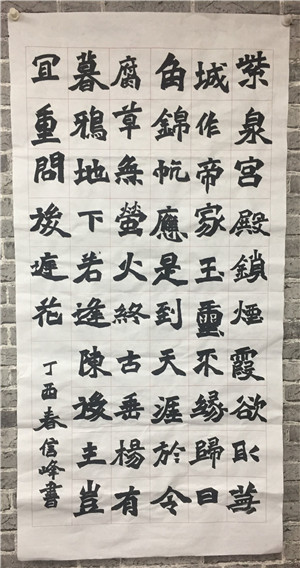 紫泉宮殿鎖煙霞欲取蕪
城作帝家玉璽不緣歸日
角錦帆應是到天涯於今
腐草無螢火終古垂楊有
暮鴉地下若逢陳後主豈
冝重問後庭花
丁酉春信峰書